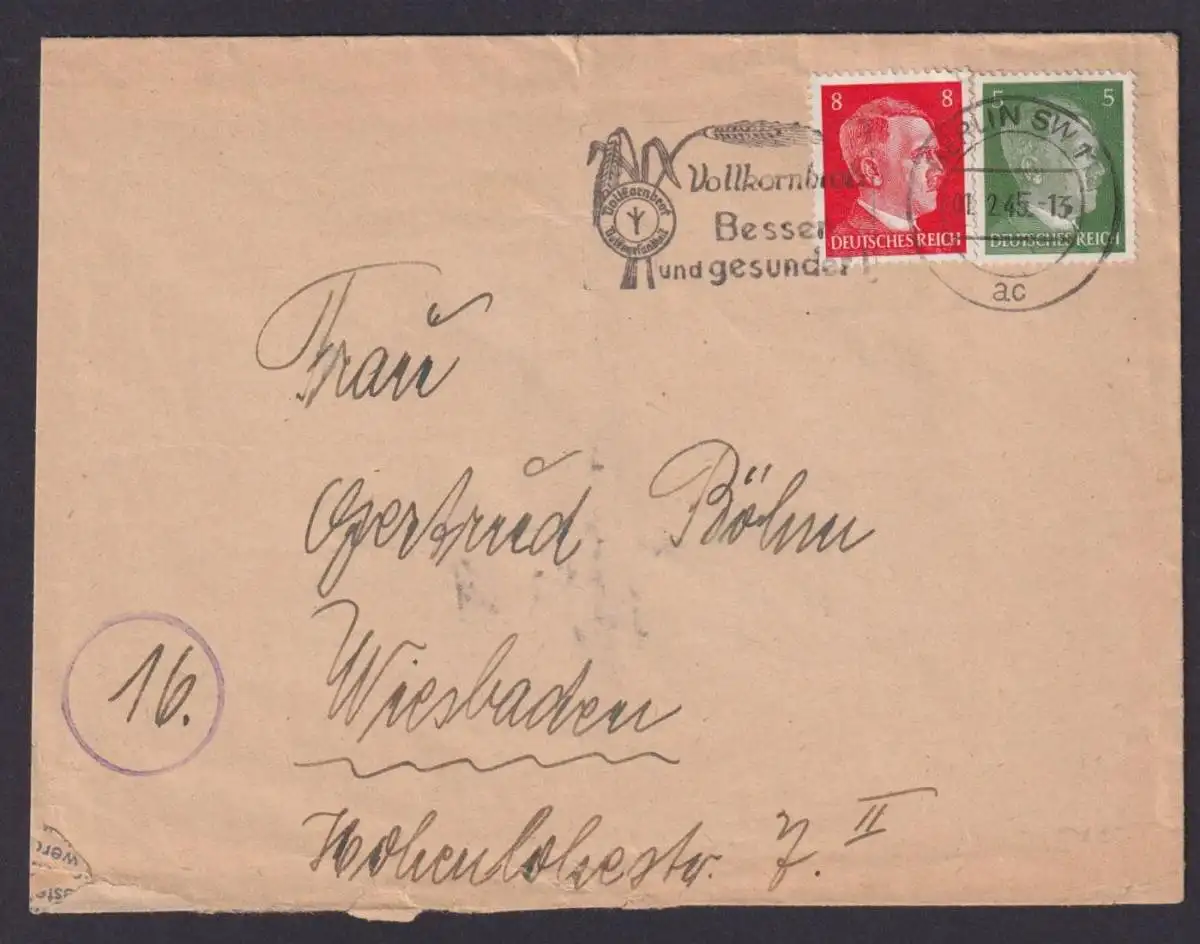 8 8
5 5
DEUTSCHES REICH
DEUTSCHES REICH
BERLIN SW
2.45.-13
ac
Vollkornbrot
Vollkornbrot
Besser
und gesunder!
Frau
Gertrud Böhm
16.
Wiesbaden
Hohenlohestr. 7 II